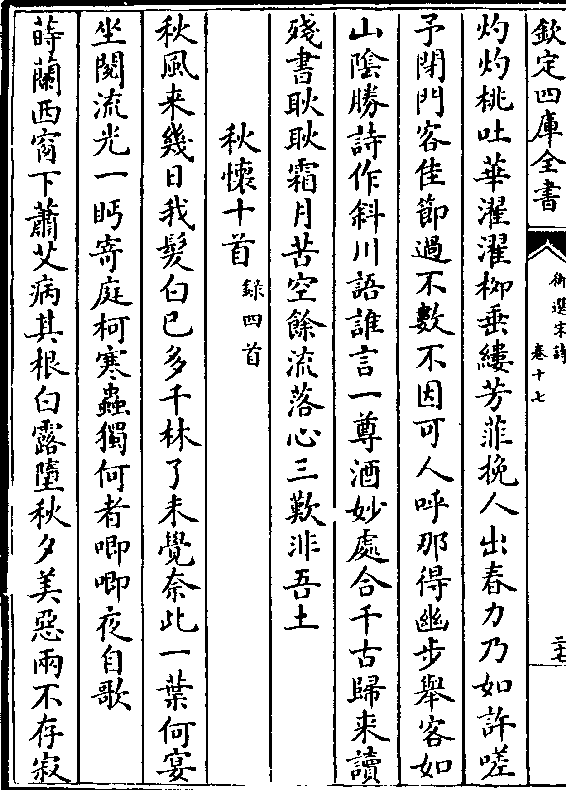 欽定四庫全書
御選宋詩
卷十七
二十七
灼灼桃吐華濯濯柳垂縷芳菲挽人出春力乃如許嗟
予閉門客佳節過不數不因可人呼那得幽步舉客如
山陰勝詩作斜川語誰言一尊酒妙處合千古歸来讀
殘書耿耿霜月苦空餘流落心三歎非吾土
秋懷十首 録四首
秋風来幾日我髮白已多千林了未覺奈此一葉何宴
坐閱流光一眄寄庭柯寒蟲獨何者唧唧夜自歌
蒔蘭西窗下蕭艾病其根白露墮秋夕美惡兩不存寂